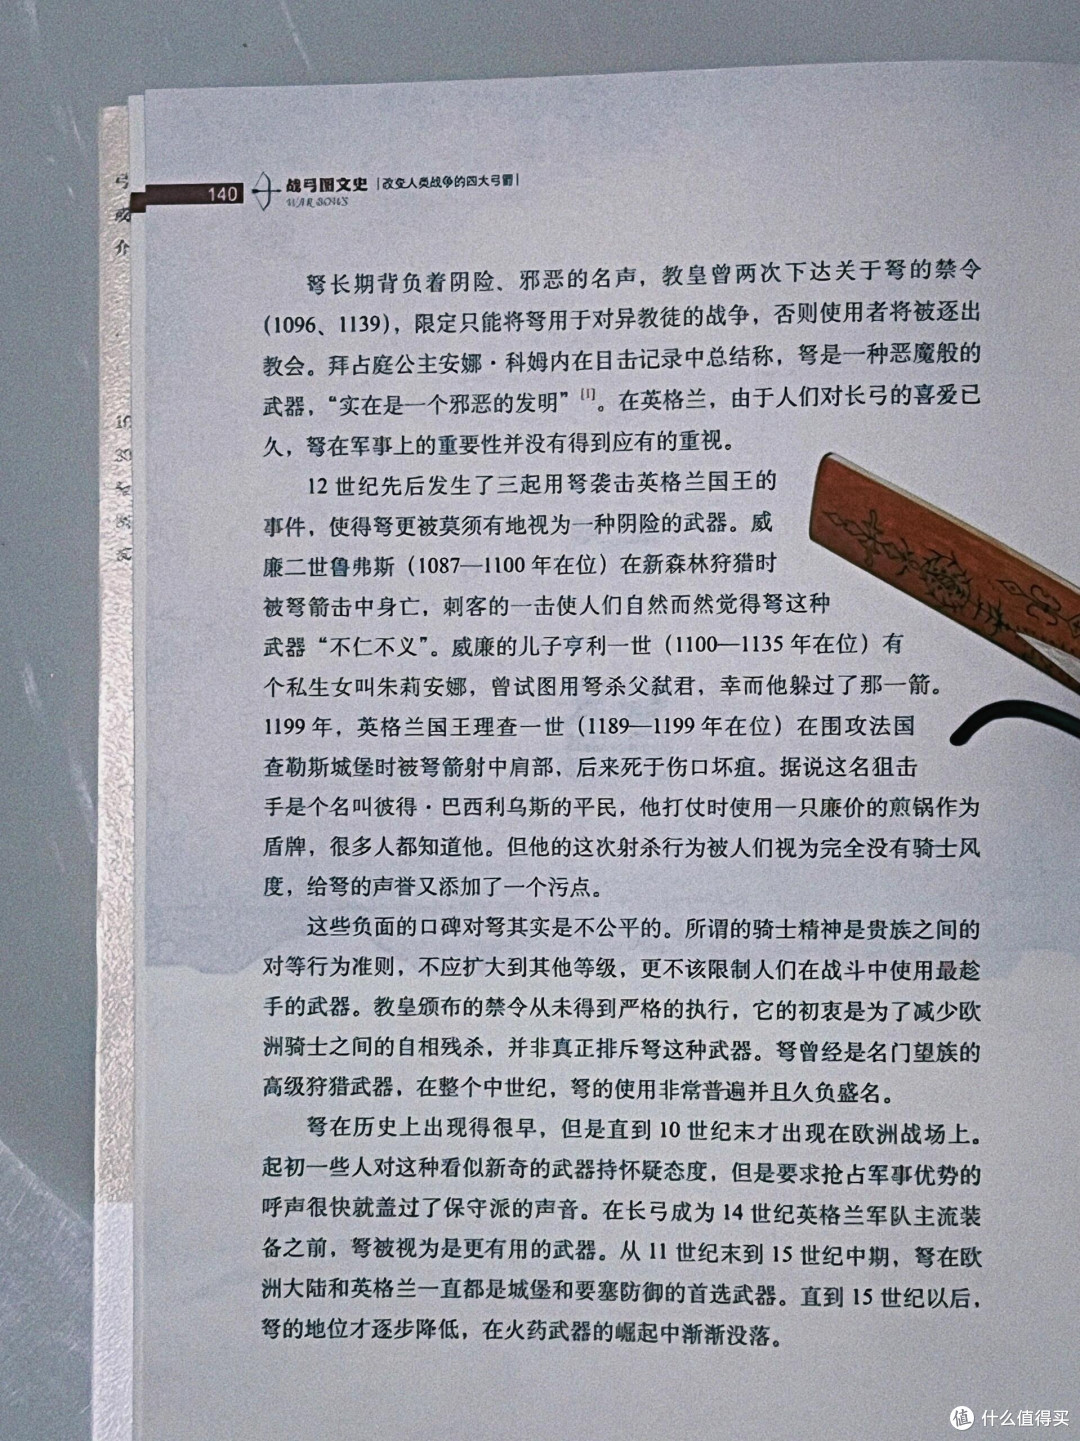 140
战弓图文史 |改变人类战争的四大弓弩|
WAR BOWS
弩长期背负着阴险、邪恶的名声，教皇曾两次下达关于弩的禁令
(1096、1139)，限定只能将弩用于对异教徒的战争，否则使用者将被逐出
教会。拜占庭公主安娜·科姆内在目击记录中总结称，弩是一种恶魔般的
武器，“实在是一个邪恶的发明”[1]。在英格兰，由于人们对长弓的喜爱已
久，弩在军事上的重要性并没有得到应有的重视。
12世纪先后发生了三起用弩袭击英格兰国王的
事件，使得弩更被莫须有地视为一种阴险的武器。威
廉二世鲁弗斯（1087—1100年在位）在新森林狩猎时
被弩箭击中身亡，刺客的一击使人们自然而然觉得弩这种
武器“不仁不义”。威廉的儿子亨利一世（1100—1135年在位）有
个私生女叫朱莉安娜，曾试图用弩杀父弑君，幸而他躲过了那一箭。
1199年，英格兰国王理查一世（1189—1199年在位）在围攻法国
查勒斯城堡时被弩箭射中肩部，后来死于伤口坏疽。据说这名狙击
手是个名叫彼得·巴西利乌斯的平民，他打仗时使用一只廉价的煎锅作为
盾牌，很多人都知道他。但他的这次射杀行为被人们视为完全没有骑士风
度，给弩的声誉又添加了一个污点。
这些负面的口碑对弩其实是不公平的。所谓的骑士精神是贵族之间的
对等行为准则，不应扩大到其他等级，更不该限制人们在战斗中使用最趁
手的武器。教皇颁布的禁令从未得到严格的执行，它的初衷是为了减少欧
洲骑士之间的自相残杀，并非真正排斥弩这种武器。弩曾经是名门望族的
高级狩猎武器，在整个中世纪，弩的使用非常普遍并且久负盛名。
弩在历史上出现得很早，但是直到10世纪末才出现在欧洲战场上。
起初一些人对这种看似新奇的武器持怀疑态度，但是要求抢占军事优势的
呼声很快就盖过了保守派的声音。在长弓成为14世纪英格兰军队主流装
备之前，弩被视为是更有用的武器。从11世纪末到15世纪中期，弩在欧
洲大陆和英格兰一直都是城堡和要塞防御的首选武器。直到15世纪以后，
弩的地位才逐步降低，在火药武器的崛起中渐渐没落。
值 什么值得买